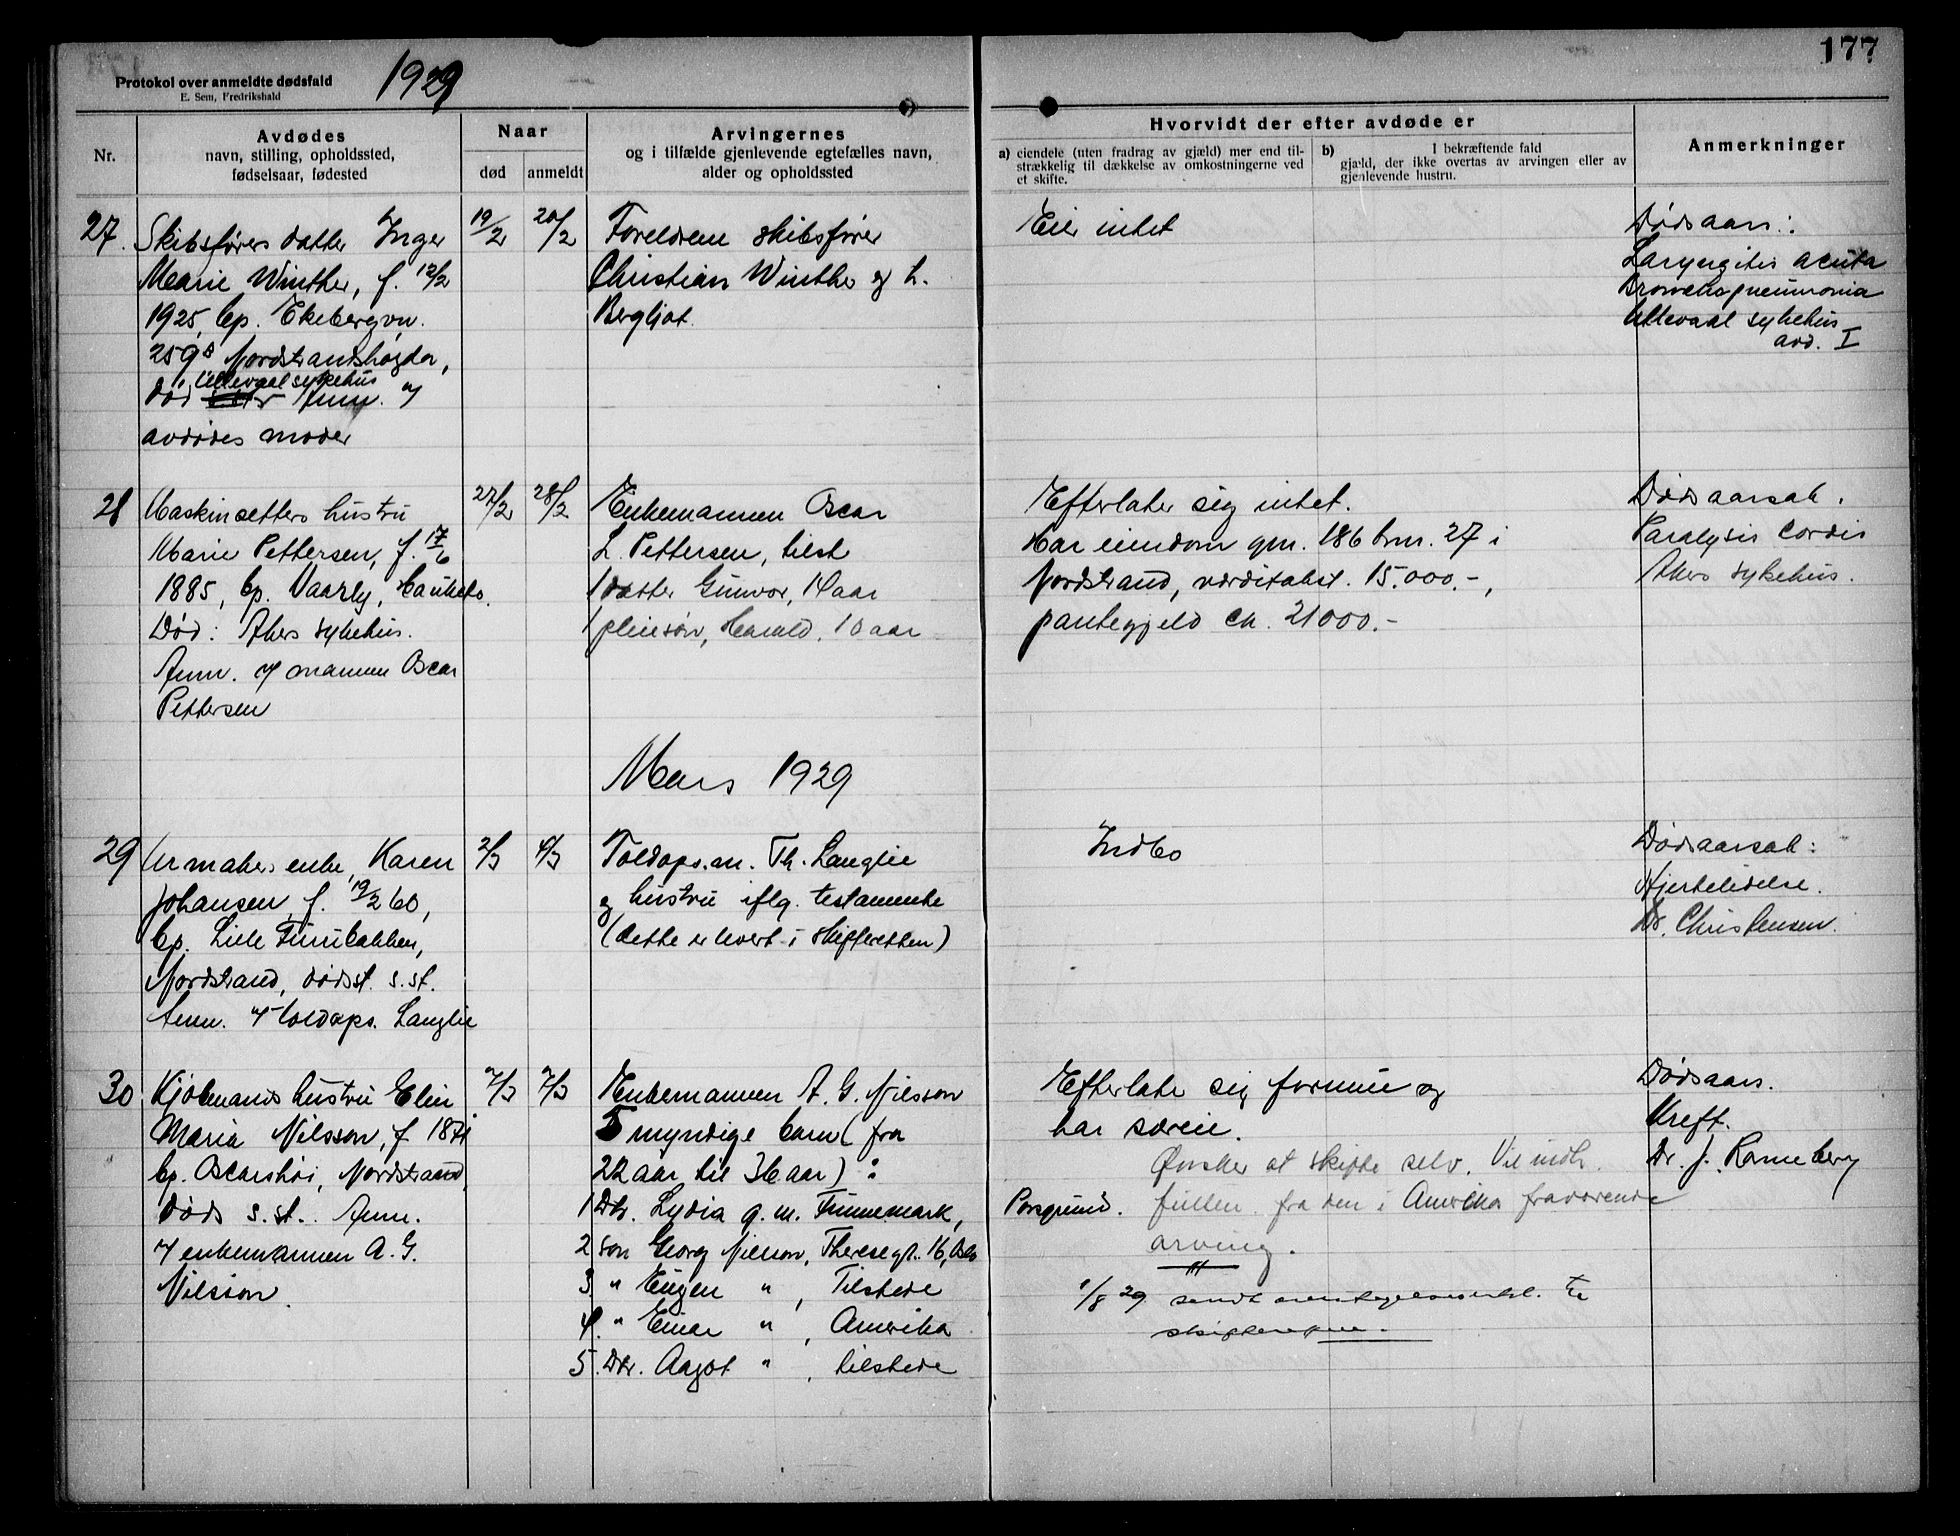 177
Protokol over anmeldte dødsfald
E. Sem, Fredrikshald
1929
Nr.
Avdødes
navn, stilling, opholdssted,
fødselsaar, fødested
Naar
død
anmeldt
Arvingernes
og i tilfælde gjenlevende egtefælles navn,
alder og opholdssted
Hvorvidt der efter avdøde er
a) eiendele (uten fradrag av gjæld) mer end til-
strækkelig til dækkelse av omkostningerne ved
et skifte.
b) I bekræftende fald
gjæld, der ikke overtas av arvingen eller av
gjenlevende hustru.
Anmerkninger
27.
Skibsførers datter Inger
Marie Winther, f. 12/2
1925, bp. Ekebergvn.
259 Nordstrandshøgda,
Ullevaal sykehus
død Anm. af
avdødes moder
19/2
20/2
Foreldrene skibsfører
Christian Winther og h.
Bergljot.
Eier intet
Dødsaars.:
Laryngitis acuta
Bronchopneumonia
Ullevaal sykehus
avd. I
28
Maskinsetters hustru
Marie Pettersen, f. 17/6
1885, bp. Vaarly, Hauketo.
Død: Akers sykehus.
Anm. af mannen Oscar
Pettersen
27/2
28/2
Enkemannen Oscar
L. Pettersen, tilst
1 datter Gunvor, 14 aar
1 pleiesøn, Harald, 10 aar
Efterlater sig intet.
Har eiendom gnr. 186 brn. 27 i
Nordstrand, værditakst. 15.000.-,
pantegjeld ca. 21000.-
Dødsaarsak.
Paralysis cordis
Akers sykehus.
Mars 1929
29
Urmakers enke, Karen
Johansen, f. 19/2 60,
bp. Lille Furubakken,
Nordstrand, dødsst. s.st.
Anm. af toldops. Langlie
2/3
4/3
Toldops.m. Th. Langlie
og hustru iflg. testamente
(dette er levert i skifteretten)
Indbo
Dødsaarsak:
Hjertelidelse.
Dr. Christensen.
30
Kjøbmands hustru Elin
Maria Nilsson, f 1871
bp. Oscarshøi, Nordstrand,
Døds s.st. Anm.
af enkemannen A. G.
Nilsson.
7/3
Enkemannen A. G. Nilsson
5 myndige barn (fra
22 aar til 36 aar) :
1 Dtr. Lydia g.m. Finnemark, Porsgrund.
2 søn Georg Nilsson, Theresegt. 16, Oslo
3 " Eugen " , Tilstede
4. " Einar " , Amerika
5. Dtr. Aagot " , tilstede
Efterlater sig formue og
har særeie.
Ønsker at skifte selv. Vil indh.
fuldm. fra den i Amerika fraværende
arving.
1/8 29 sendt til
Dødsaars.
Kreft.
Dr. J. Ranneberg